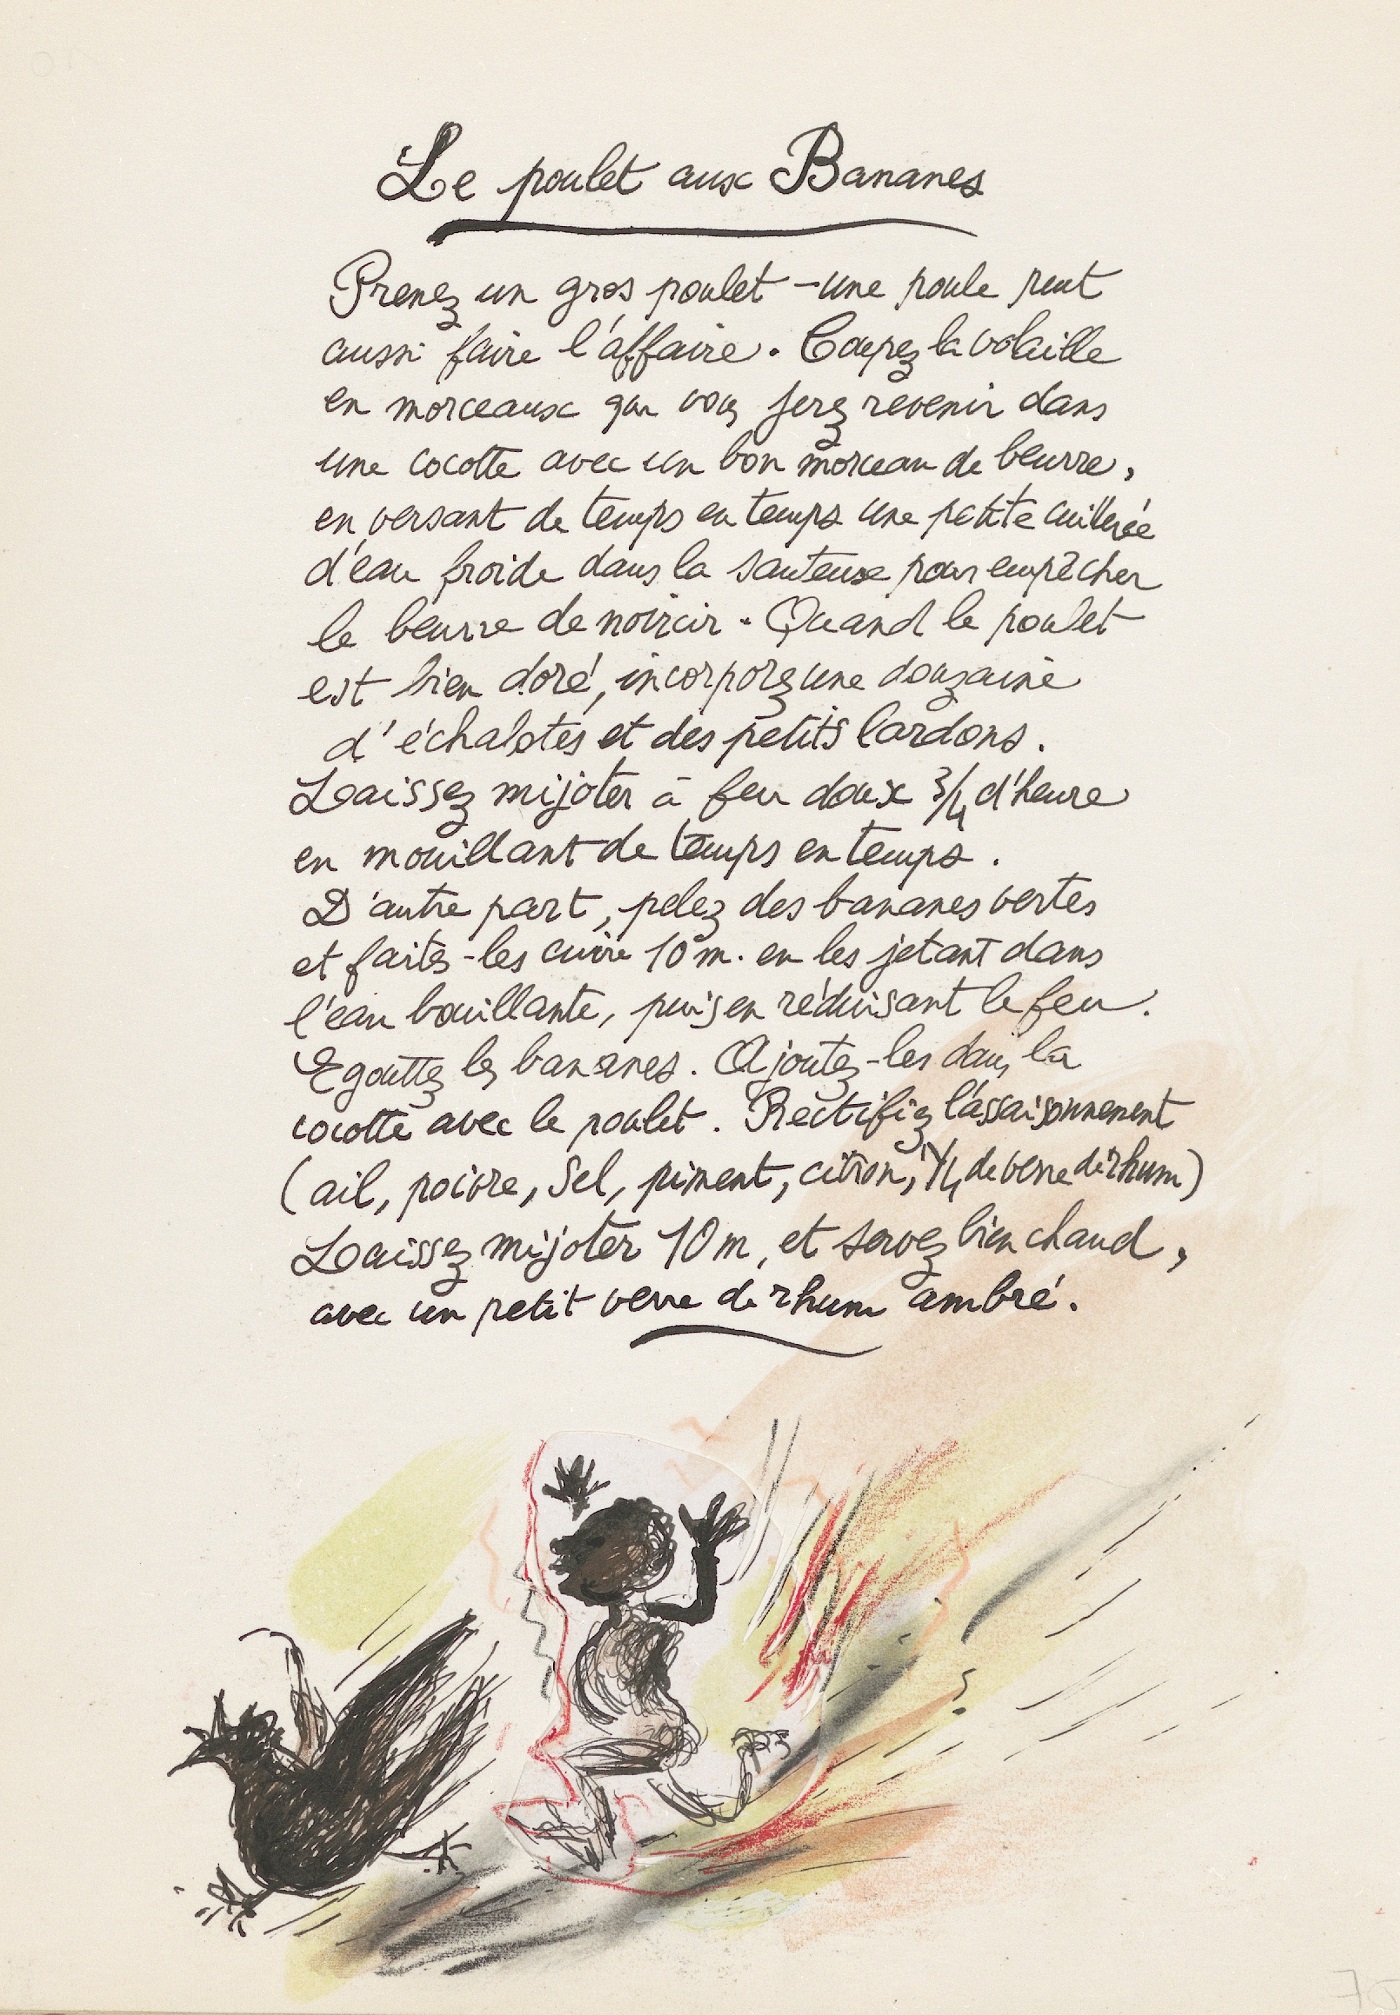 Le poulet aux Bananes
Prenez un gros poulet - une poule peut
aussi faire l'affaire. Coupez la volaille
en morceaux que vous ferez revenir dans
une cocotte avec un bon morceau de beurre,
en versant de temps en temps une petite cuillerée
d'eau froide dans la sauteuse pour empêcher
le beurre de noircir. Quand le poulet
est bien doré, incorporez une douzaine
d'échalotes et des petits lardons.
Laissez mijoter à feu doux 3/4 d'heure
en mouillant de temps en temps.
D'autre part, pelez des bananes vertes
et faites-les cuire 10 m. en les jetant dans
l'eau bouillante, puis en réduisant le feu.
Egouttez les bananes. Ajoutez-les dans la
cocotte avec le poulet. Rectifiez l'assaisonnement
(ail, poivre, sel, piment, citron, 1/4 de verre de rhum)
Laissez mijoter 10 m, et servez bien chaud,
avec un petit verre de rhum ambré.